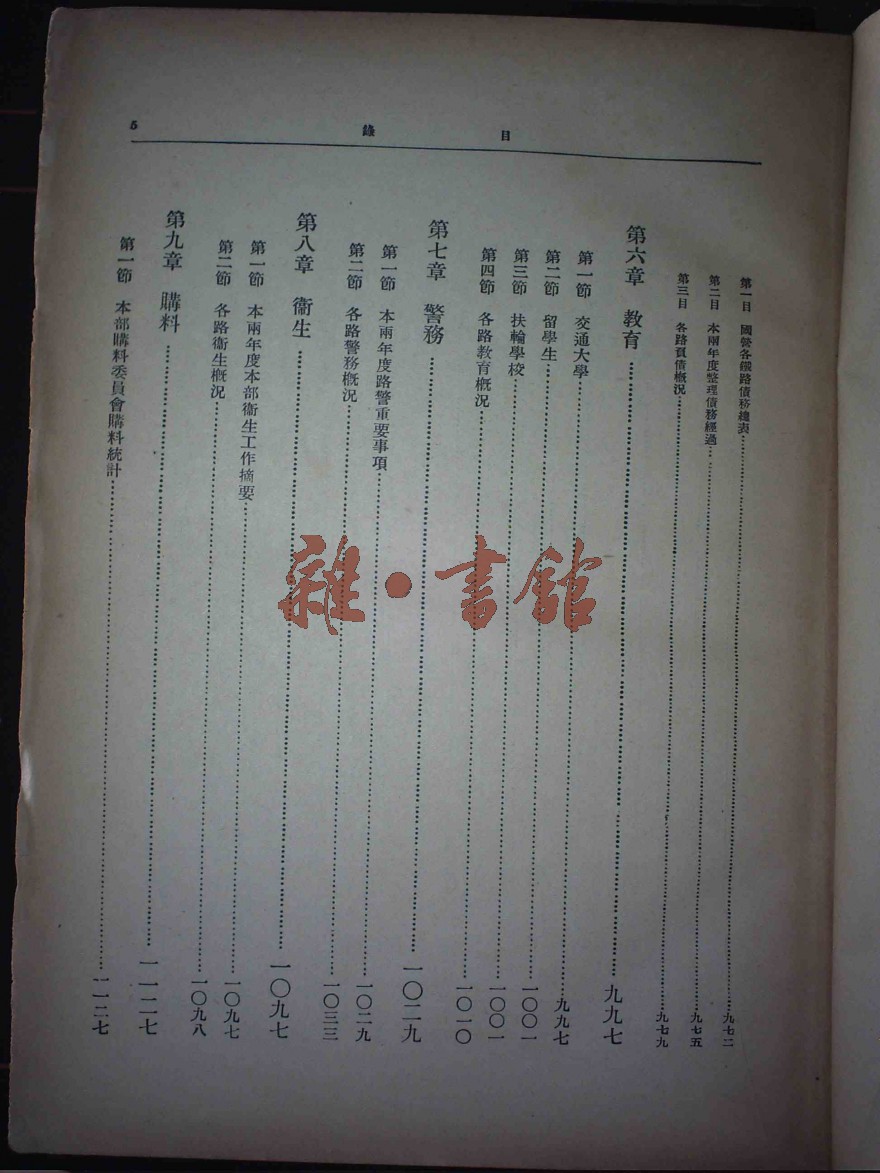 目錄
5
第一目 國營各鐵路債務總表……九七二
第二目 本兩年度整理債務經過……九七五
第三目 各路負債概況……九七九
第六章 教育……九九七
第一節 交通大學……九九七
第二節 留學生……一〇〇一
第三節 扶輪學校……一〇〇一
第四節 各路教育概況……一〇一〇
第七章 警務……一〇二九
第一節 本兩年度路警重要事項……一〇二九
第二節 各路警務概況……一〇三三
第八章 衞生……一〇九七
第一節 本兩年度本部衞生工作摘要……一〇九七
第二節 各路衞生概況……一〇九八
第九章 購料……一一二七
第一節 本部購料委員會購料統計……一一二七
雜·書館